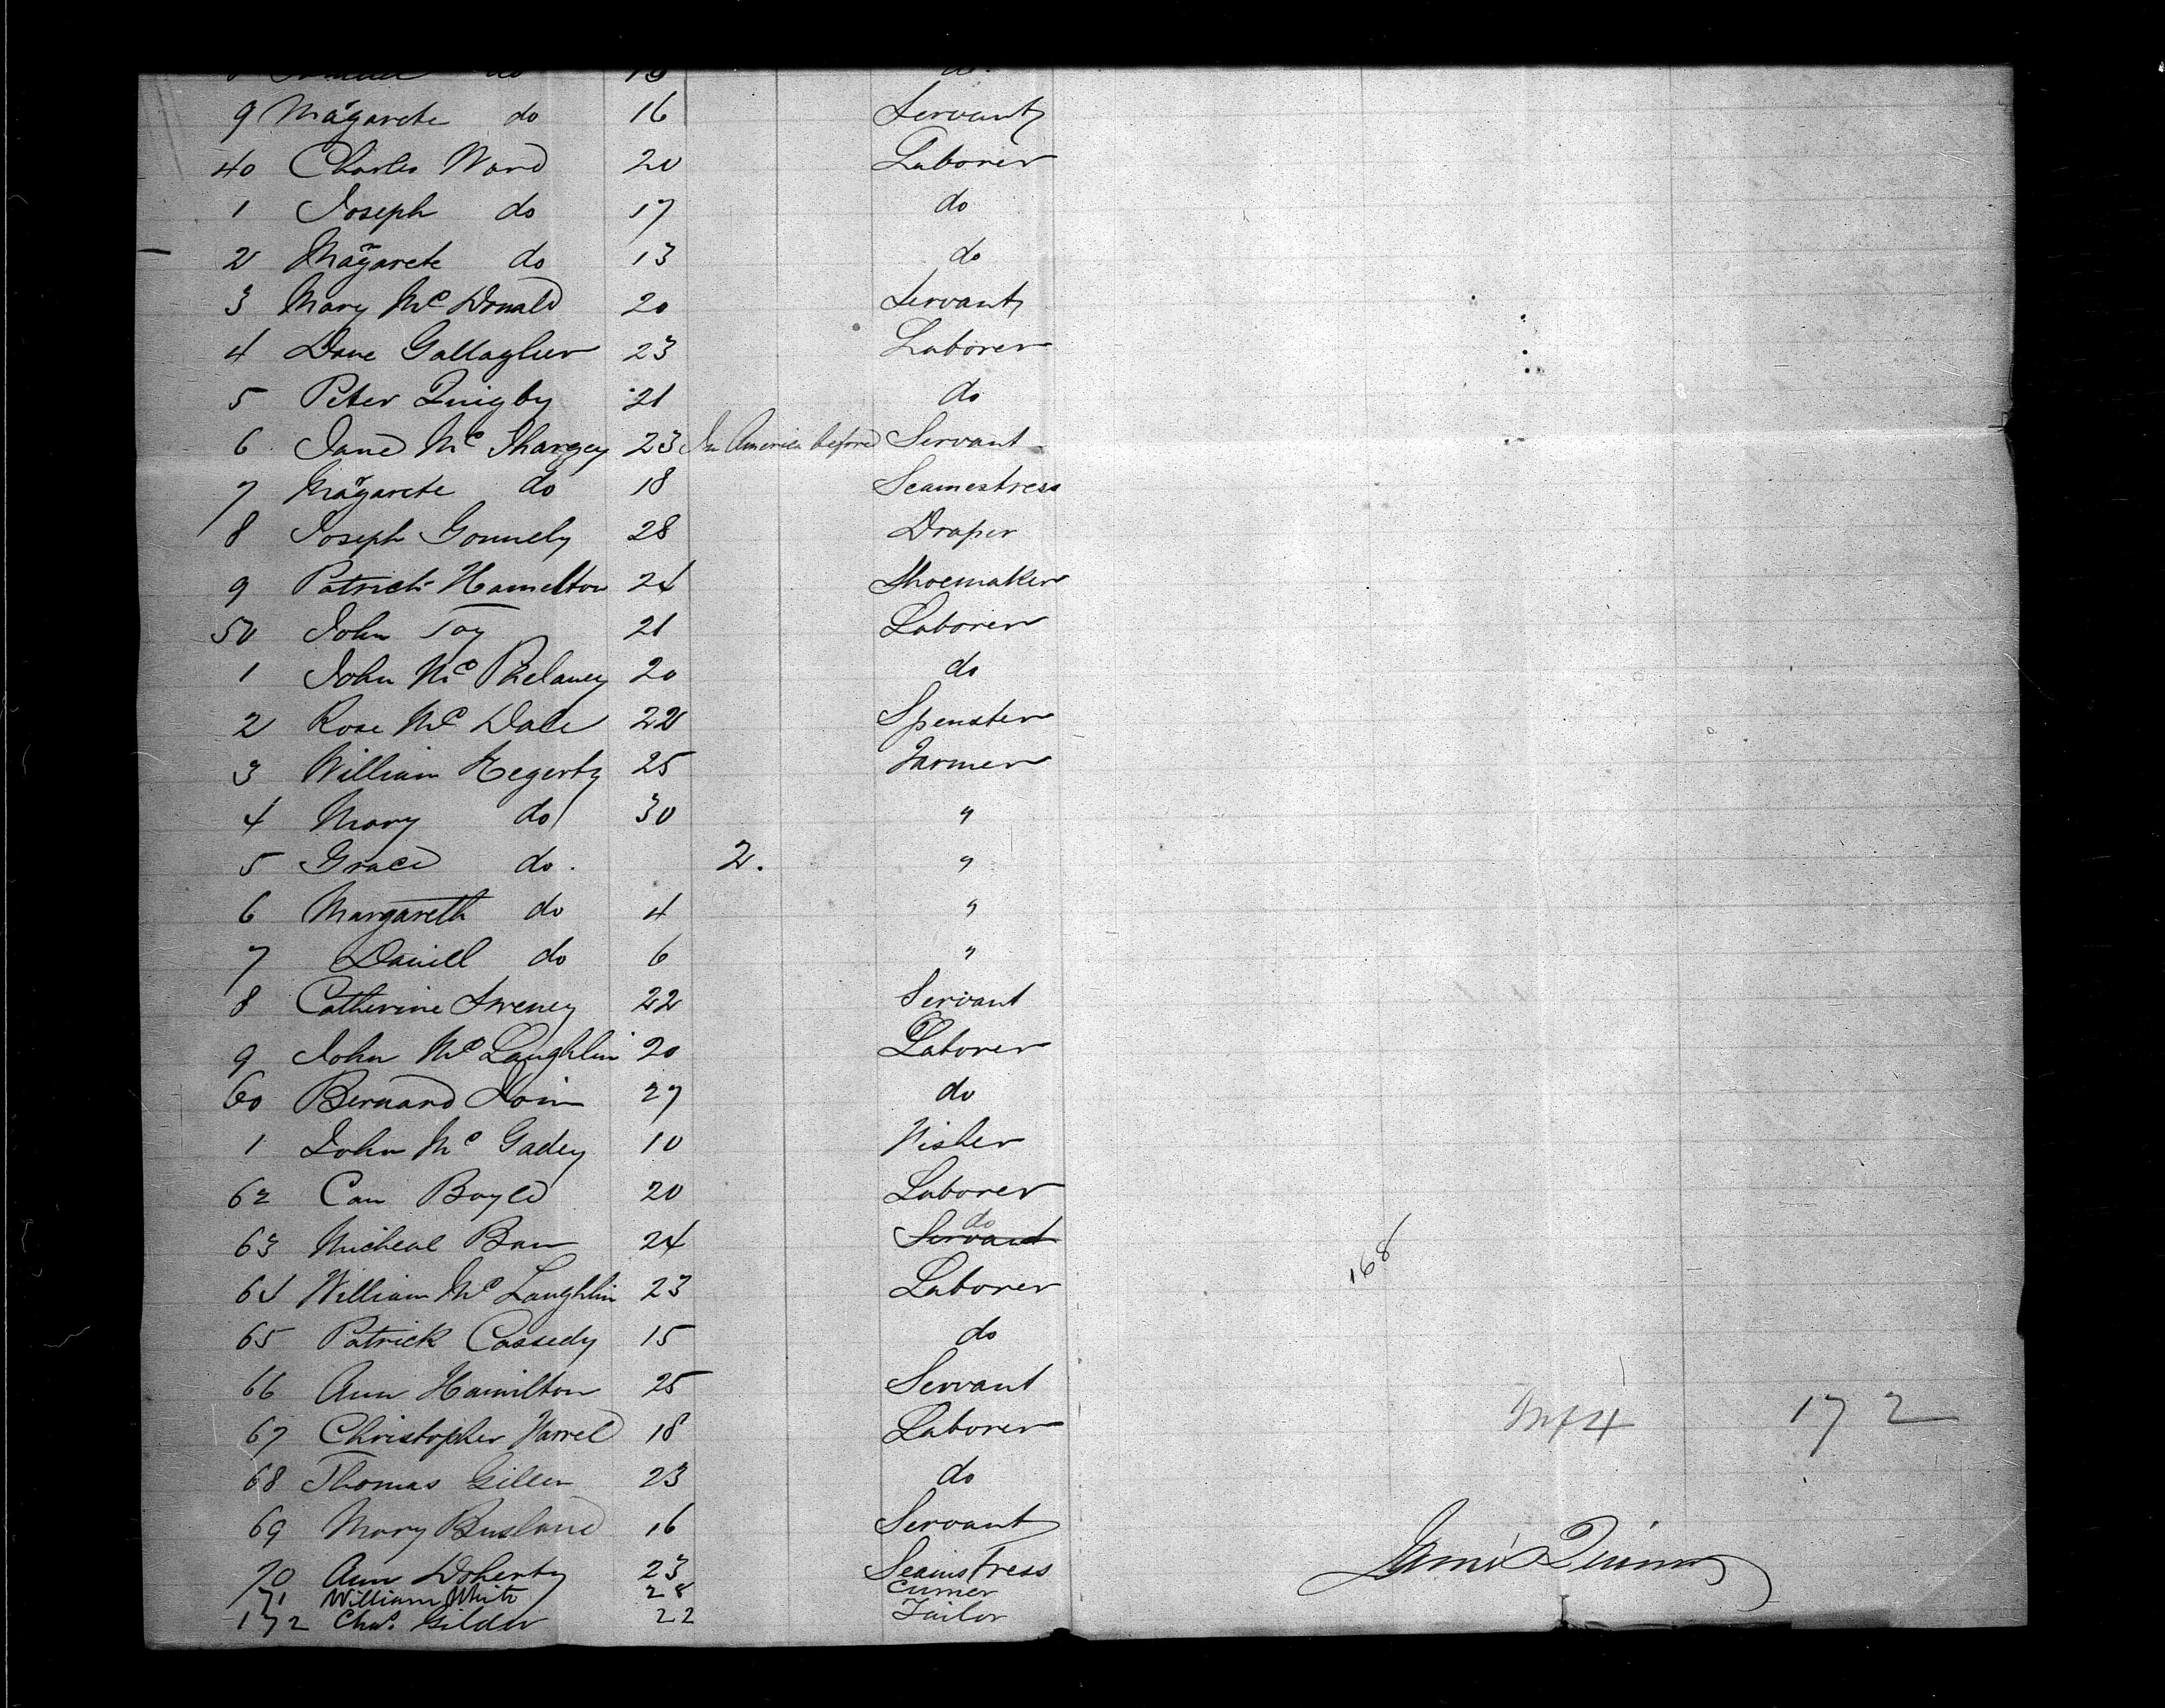 do 13 do.
9 Margarete do 16 Servant
40 Charles Ward 20 Laborer
1 Joseph do 17 do
2 Margarete do 13 do
3 Mary Mc Donald 20 Servant
4 Dane Gallagher 23 Laborer
5 Peter Quigby 21 do
6 Jane Mc Shargey 23 In America before Servant
7 Margarete do 18 Seamestress
8 Joseph Gonnely 28 Draper
9 Patrick Hamelton 24 Shoemaker
50 John Toy 21 Laborer
1 John Mc Phelaney 20 do
2 Rose Mc Dale 22 Spenster
3 William Hegerty 25 Farmer
4 Mary do 30 "
5 Grace do. 2. "
6 Margareth do 4 "
7 Daniel do 6 "
8 Catherine Sweney 22 Servant
9 John Mc Laughlin 20 Laborer
60 Bernard 27 do
1 John Mc Gadey 10 Fisher
62 Con Boyle 20 Laborer
do
63 Micheal 24 Servant
168
64 William Mc Laughlin 23 Laborer
65 Patrick Cassedy 15 do
66 Ann Hamilton 25 Servant
67 Christopher Farrel 18 Laborer 172
68 Thomas Gillen 23 do
69 Mary 16 Servant
70 Ann Doherty 23 Seamstress
71 William White 28
172 Chas. Gilder 22 Tailor